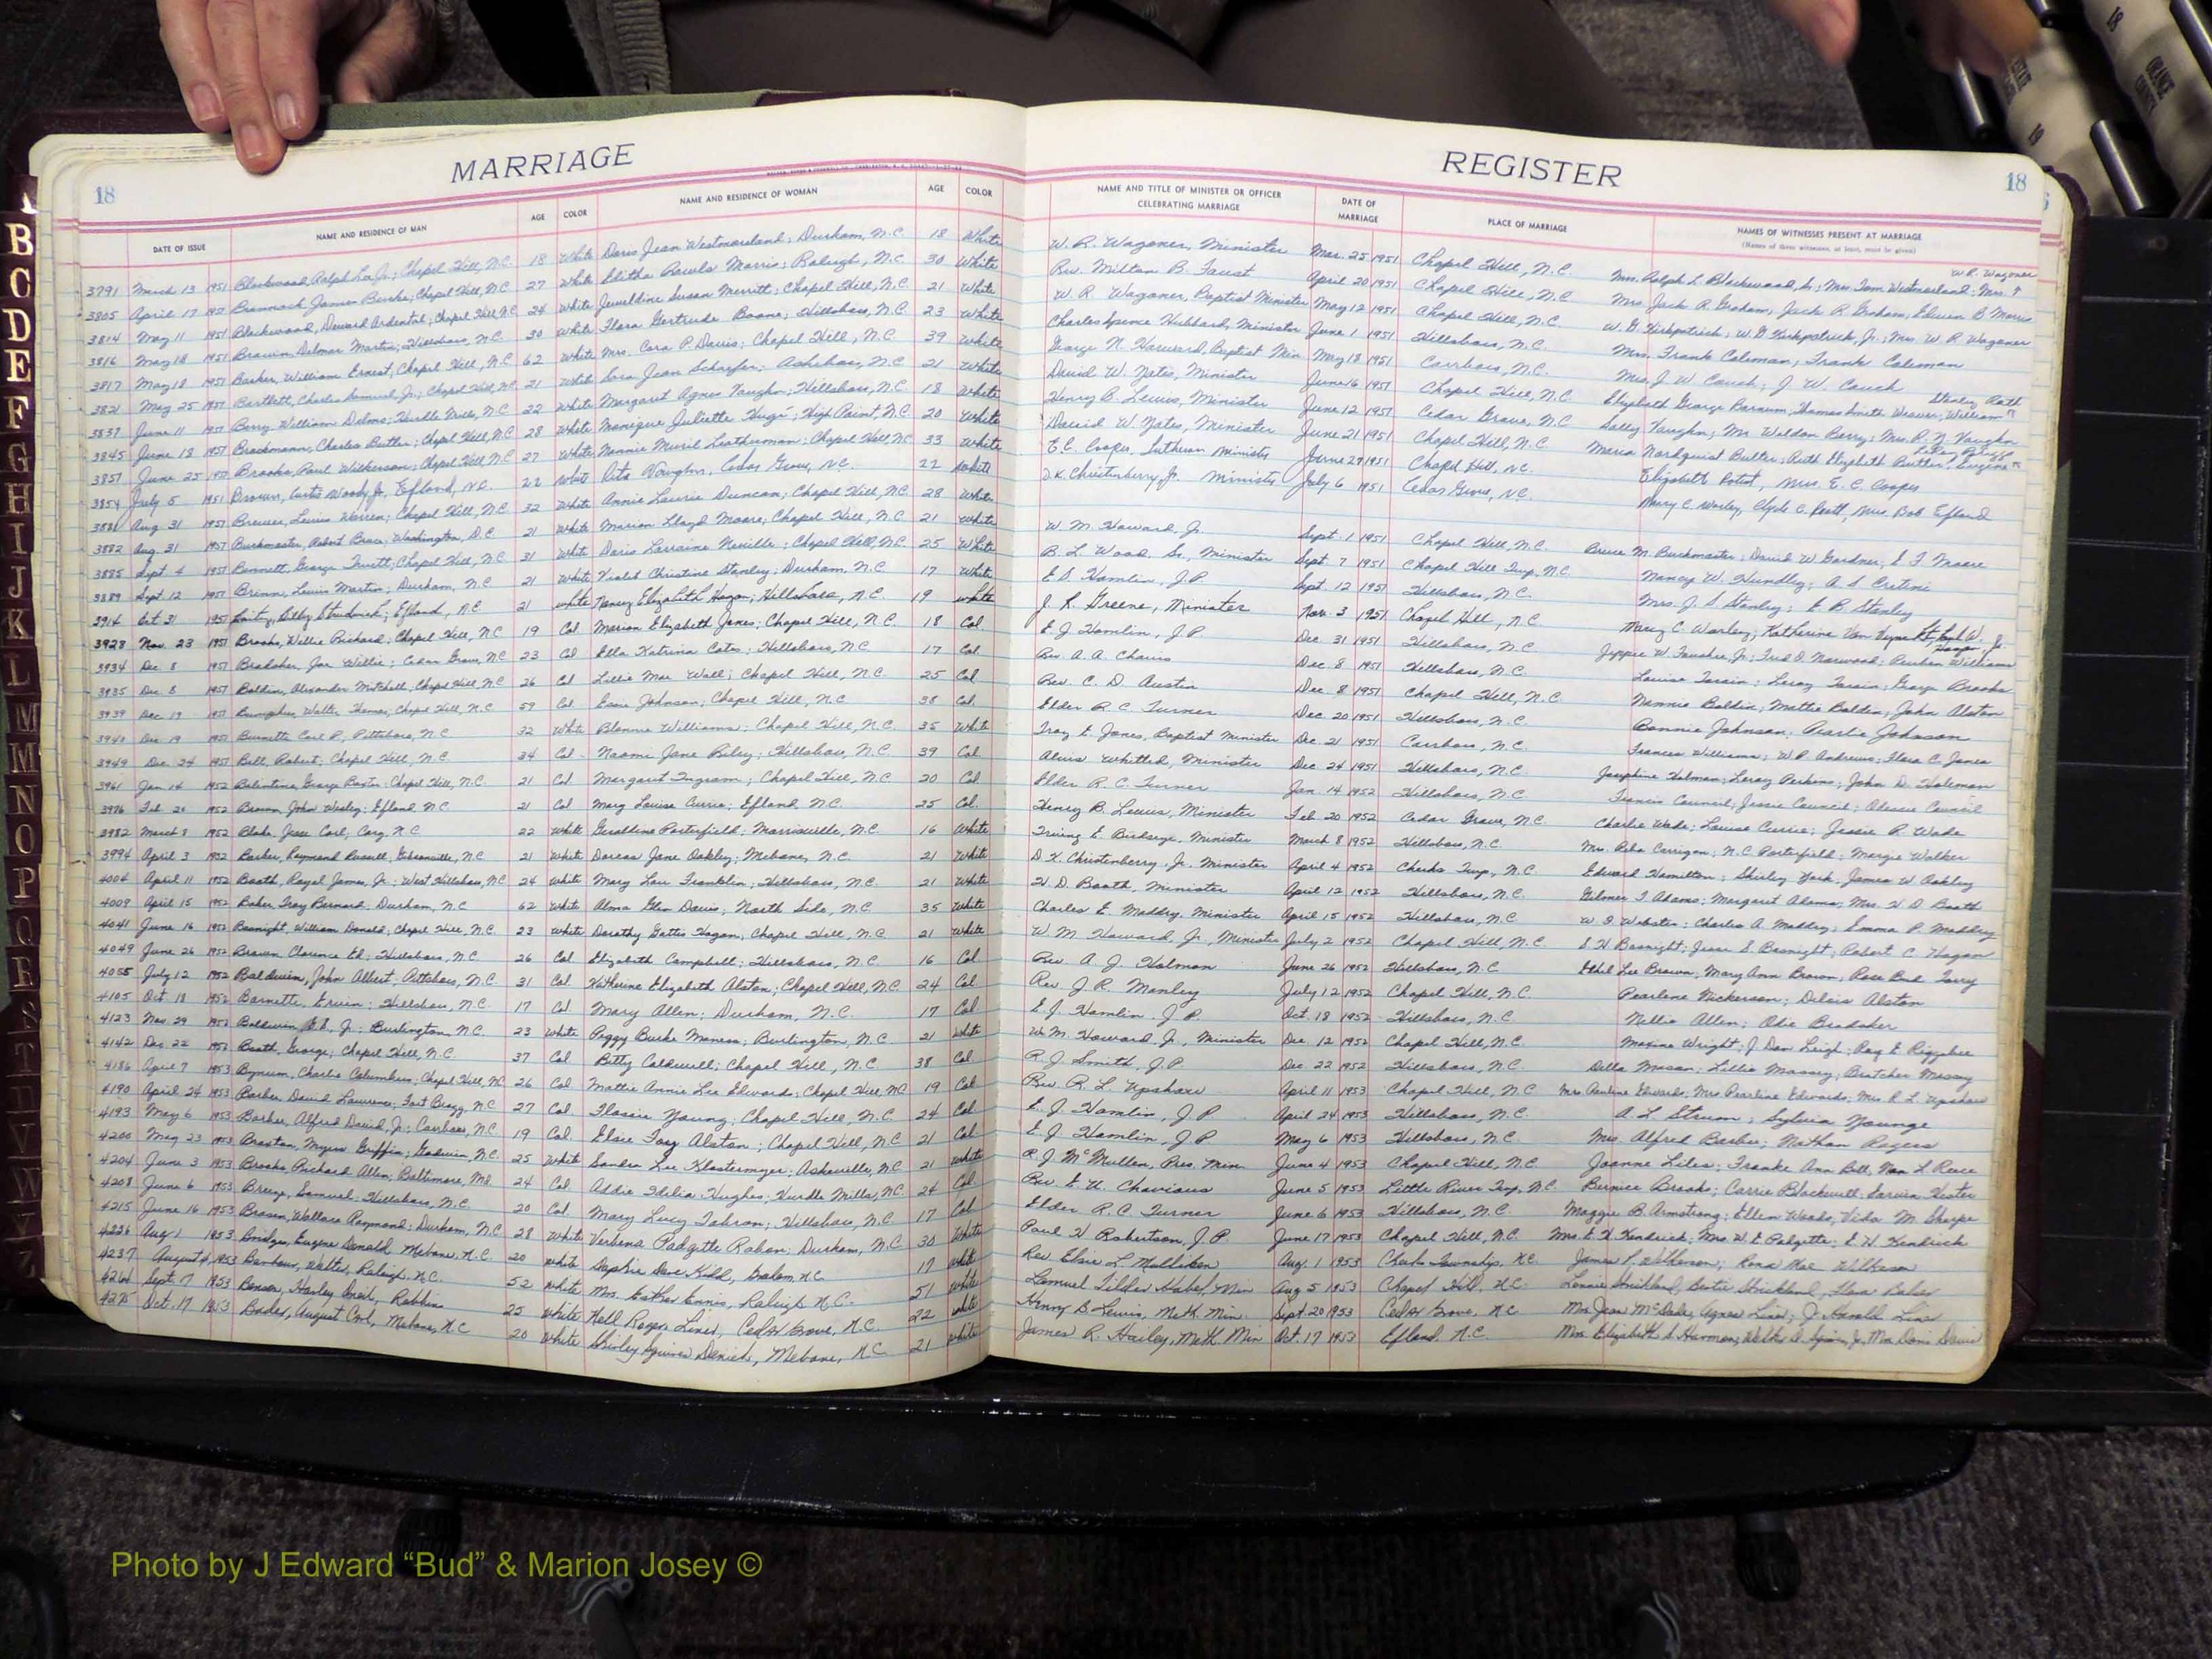 MARRIAGE
REGISTER
18
18
DATE OF ISSUE
NAME AND RESIDENCE OF MAN
AGE
COLOR
NAME AND RESIDENCE OF WOMAN
AGE
COLOR
NAME AND TITLE OF MINISTER OR OFFICER
CELEBRATING MARRIAGE
DATE OF
MARRIAGE
PLACE OF MARRIAGE
NAMES OF WITNESSES PRESENT AT MARRIAGE
(Names of three witnesses, at least, must be given)
3791 March 13 1951 Blackwood, Ralph Lee Jr.; Chapel Hill, N.C. 18 White Doris Jean Westmoreland; Durham, N.C. 18 White W. R. Wagoner, Minister Mar. 25 1951 Chapel Hill, N.C.
3805 April 17 1951 James Burke; Chapel Hill, N.C. 27 White Elitha Rawls Morris; Raleigh, N.C. 30 White Rev. Milton B. Faust April 20 1951 Chapel Hill, N.C. Mrs. Jack R. Graham, Jack R. Graham, Edwin B. Morris
3814 May 11 1951 Blackwood, Ardental; Chapel Hill N.C. 24 White Jeweldine Susan Merritt; Chapel Hill, N.C. 21 White W. R. Wagoner, Baptist Minister May 12 1951 Chapel Hill, N.C. W. G. Kirkpatrick; W. G. Kirkpatrick, Jr.; Mrs. W. R. Wagoner
3816 May 18 1951 Brown, Delmar Martin; Hillsboro, N.C. 30 White Flora Gertrude Boone; Hillsboro, N.C. 23 White Charles Spence Hubbard, Minister June 1 1951 Hillsboro, N.C. Mrs. Frank Coleman, Frank Coleman
3817 May 18 1951 Barker, William Ernest, Chapel Hill, N.C. 62 White Mrs. Cora P. Davis; Chapel Hill, N.C. 39 White George N. Harward, Baptist Min May 18 1951 Carrboro, N.C. Mrs. J. W. Couch; J. W. Couch
3821 May 25 1951 Bartlett, Charles Samuel, Jr.; Chapel Hill, N.C. 21 White Jean Schaefer; Asheboro, N.C. 21 White David W. Yates, Minister June 16 1951 Chapel Hill, N.C.
3837 June 11 1951 Berry William Delmo; Hurdle Mills, N.C. 22 White Margaret Agnes Vaughn; Hillsboro, N.C. 18 White Henry B. Lewis, Minister June 12 1951 Cedar Grove, N.C. Sally Vaughn; Mr. Weldon Berry; Mrs. P. N. Vaughn
3845 June 18 1951 Brockmann, Charles Butler; Chapel Hill, N.C. 28 White Monique Juliette Hugé; High Point, N.C. 20 White David W. Yates, Minister June 21 1951 Chapel Hill, N.C.
3851 June 25 1951 Brooks, Paul Wilkerson; Chapel Hill, N.C. 27 White Nannie Muril Leatherman; Chapel Hill, N.C. 33 White E. C. Cooper, Lutheran Minister June 29 1951 Chapel Hill, N.C. Elizabeth Poteat, Mrs. E. C. Cooper
3854 July 5 1951 Brown, Curtis Woody Jr, Efland, N.C. 22 White Rita Vaughn, Cedar Grove, N.C. 22 White D. K. Christenberry, Jr. Minister July 6 1951 Cedar Grove, N.C. Mary C. Worley, Clyde C. Pratt, Mrs. Bob Efland
Aug 31 1951 Brewer, Lewis Warren; Chapel Hill, N.C. 32 White Annie Laurie Duncan; Chapel Hill, N.C. 28 White
3882 Aug. 31 1951 Buckmaster, Robert Bruce, Washington, D.C. 21 White Marion Lloyd Moore; Chapel Hill, N.C. 21 White W. M. Howard, Jr. Sept. 1 1951 Chapel Hill, N.C. Bruce M. Buckmaster; David W. Gardner, E. F. Moore
3885 Sept 4 1951 Bennett, George Truitt; Chapel Hill, N.C. 31 White Doris Lorraine Neville; Chapel Hill, N.C. 25 White B. L. Wood, Sr., Minister Sept 7 1951 Chapel Hill Twp, N.C. Nancy W. Hundley; A. S.
3889 Sept. 12 1951 Brinn, Lewis Martin; Durham, N.C. 21 White Violet Christine Stanley; Durham, N.C. 17 White E. J. Hamlin, J.P. Sept. 12 1951 Hillsboro, N.C. Mrs. J. S. Stanley; E. B. Stanley
3914 Oct 31 1951 Efland, N.C. 21 White Nancy Elizabeth Hogan; Hillsboro, N.C. 19 White J. R. Greene, Minister Nov. 3 1951 Chapel Hill, N.C.
3928 Nov. 23 1951 Brooks, Willie Richard; Chapel Hill, N.C. 19 Col. Marion Elizabeth Jones; Chapel Hill, N.C. 18 Col. E. J. Hamlin, J.P. Dec. 31 1951 Hillsboro, N.C.
3934 Dec 8 1951 Bradsher, Joe Willie; Cedar Grove, N.C. 23 Col Ella Katrina Cates; Hillsboro, N.C. 17 Col. Rev A. A. Chavis Dec. 8 1951 Hillsboro, N.C.
3935 Dec 8 1951 Baldwin, Alexander Mitchell, Chapel Hill, N.C. 26 Col Lillie Mae Wall; Chapel Hill, N.C. 25 Col. Rev. C. D. Austin Dec 8 1951 Chapel Hill, N.C.
3939 Dec 19 1951 Walter Thomas, Chapel Hill, N.C. 59 Col. Essie Johnson; Chapel Hill, N.C. 38 Col. Elder R. C. Turner Dec 20 1951 Hillsboro, N.C. Bonnie Johnson; Pearlie Johnson
3940 Dec 19 1951 Burnette Carl P., Pittsboro, N.C. 32 White Blonnie Williams; Chapel Hill, N.C. 35 White Troy E. Jones, Baptist Minister Dec 21 1951 Carrboro, N.C. Frances Williams; W. P. Andrews; Flora C. Jones
3949 Dec. 24 1951 Bell, Robert; Chapel Hill, N.C. 34 Col. Naomi Jane Riley; Hillsboro, N.C. 39 Col. Alvis Whitted, Minister Dec 24 1951 Hillsboro, N.C. Josephine Holman; Leroy Perkins; John D. Holeman
3961 Jan 14 1952 Balentine, George Paxton; Chapel Hill, N.C. 21 Col Margaret Ingram; Chapel Hill, N.C. 20 Col Elder R. C. Turner Jan. 14 1952 Hillsboro, N.C. Francis Council; Jessie Council; Council
3976 Feb 20 1952 Brown, John Wesley; Efland N.C. 21 Col Mary Louise Currie; Efland, N.C. 25 Col. Henry B. Lewis, Minister Feb 20 1952 Cedar Grove, N.C. Charlie Wade; Louise Currie; Jessie R. Wade
3982 March 8 1952 Blake, Jesse Carl, Cary, N.C. 22 White Geraldine Porterfield; Morrisville, N.C. 16 White Irving E. Birdseye, Minister March 8 1952 Hillsboro, N.C. Mrs. Reba Carrigan; N. C. Porterfield; Margie Walker
3994 April 3 1952 Barker, Raymond Russell, Gibsonville, N.C. 21 White Dorcas Jane Oakley; Mebane, N.C. 21 White D. K. Christenberry, Jr. Minister April 4 1952 Cheeks Twp, N.C. Edward Hamilton; Shirley York, James W. Oakley
4004 April 11 1952 Booth, Royal James, Jr.; West Hillsboro, N.C. 24 White Mary Lou Franklin; Hillsboro, N.C. 21 White H. D. Booth, Minister April 12 1952 Hillsboro, N.C. Gilmer T. Adams; Margaret Adams; Mrs. H. D. Booth
4009 April 15 1952 Baker, Troy Bernard; Durham, N.C. 62 White Alma Glen Davis; North Side, N.C. 35 White Charles E. Maddry, Minister April 15 1952 Hillsboro, N.C. W. D. Webster; Charles A. Maddry; Emma P. Maddry
4041 June 16 1952 Basnight, William Donald; Chapel Hill, N.C. 23 White Dorothy Gattis Hogan; Chapel Hill, N.C. 21 White W. M. Howard, Jr., Minister July 2 1952 Chapel Hill, N.C. S. H. Basnight; Jesse S. Basnight; Robert C. Hogan
4049 June 26 1952 Brown Clarence Ed; Hillsboro, N.C. 26 Col Elizabeth Campbell; Hillsboro, N.C. 16 Col Rev. A. J. Holman June 26 1952 Hillsboro, N.C. Ethel Lee Brown; Mary Ann Brown; Rosa Bud Torry
4055 July 12 1952 Baldwin, John Albert, Pittsboro, N.C. 31 Col. Katherine Elizabeth Alston; Chapel Hill, N.C. 24 Col Rev J. R. Manley July 12 1952 Chapel Hill, N.C. Pearlene Nickerson; Delois Alston
4105 Oct. 18 1952 Barnette, Ervin; Hillsboro, N.C. 17 Col Mary Allen; Durham, N.C. 17 Col E. J. Hamlin, J.P. Oct. 18 1952 Hillsboro, N.C. Nellie Allen; Obie Bradsher
4123 Nov. 29 1952 Baldwin, Jr.; Burlington, N.C. 23 White Peggy Burke Maness; Burlington, N.C. 21 White W. M. Howard Jr., Minister Dec. 12 1952 Chapel Hill, N.C. Maxine Wright; J. Dan Leigh; Ray E. Riggsbee
4142 Dec 22 1952 Booth, George; Chapel Hill, N.C. 37 Col Betty Caldwell; Chapel Hill, N.C. 38 Col R. J. Smith, J.P. Dec 22 1952 Hillsboro, N.C. Della Mason; Lillie Massey; Bratcher Massey
4186 April 7 1953 Bynum, Charlie Columbus; Chapel Hill, N.C. 26 Col Mattie Annie Lee Edwards; Chapel Hill, N.C. 19 Col Rev R. L. Upshaw April 11 1953 Chapel Hill, N.C. Mrs. Pauline Edwards; Mrs Pearline Edwards; Mrs R. L. Upshaw
4190 April 24 1953 Barber, David Lawrence; Fort Bragg, N.C. 27 Col. Flossie Young; Chapel Hill, N.C. 24 Col E. J. Hamlin, J.P. April 24 1953 Hillsboro, N.C. A. L. Strum; Sylvia Younge
4193 May 6 1953 Barbee, Alfred David, Jr.; Carrboro, N.C. 19 Col. Elsie Foy Alston; Chapel Hill, N.C. 21 Col. E. J. Hamlin, J.P. May 6 1953 Hillsboro, N.C. Mrs. Alfred Barbee; Nathan Rogers
4200 May 23 1953 Braxton, Myron Griffin; Godwin, N.C. 25 White Sandra Lee Klostermyer; Asheville, N.C. 21 White R. J. McMullen, Pres. Min. June 4 1953 Chapel Hill, N.C. Joanne Liles; Franke Ann Bell, Van L. Reece
4204 June 3 1953 Brooks, Richard Allen; Baltimore, Md. 24 Col. Addie Idelia Hughes; Hurdle Mills, N.C. 24 Col Rev E. U. Chavious June 5 1953 Little River Twp, N.C. Bernice Brooks; Carrie Blackwell; Hester
4208 June 6 1953 Breeze, Samuel; Hillsboro, N.C. 20 Col. Mary Lucy Tabron; Hillsboro, N.C. 17 Col Elder R. C. Turner June 6 1953 Hillsboro, N.C. Maggie B. Armstrong; Ellen Woods, Vida M. Sharpe
4215 June 16 1953 Wallace Raymond; Durham, N.C. 28 White Verbena Padgette Raban; Durham, N.C. 30 White Paul H. Robertson, J.P. June 17 1953 Chapel Hill, N.C. Mrs. E. H. Kendrick; Mrs. W. E. Padgette; E. H. Kendrick
4236 Aug 1 1953 Bridges, Eugene Donald, Mebane, N.C. 20 White Sophie Kidd, Graham, N.C. 17 White Rev Elsie L. Aug. 1 1953 Cheeks Township, N.C. James P. Wilkerson; Rena Mae Wilkerson
4237 August 4, 1953 Barbour, Walter, Raleigh, N.C. 52 White Mrs. Esther Ennis, Raleigh N.C. 51 White Lemuel Tilder Min Aug 5 1953 Chapel Hill, N.C. Lonnie Strickland, Bertie Strickland,
Sept. 17 1953 Harley 25 White Nell Rogers Liner, Cedar Grove, N.C. 22 White Henry B Lewis, Meth. Min Sept. 20 1953 Cedar Grove, N.C. Agnes Liner, J. Harold Liner
4275 Oct. 17 1953 August Carl, Mebane, N.C. 20 White Shirley Squires Mebane, N.C. 21 White James R. Hailey, Meth. Min Oct. 17 1953 Efland, N.C.
B
C
D
E
F
G
H
I
J
K
L
M
M
N
O
P
Q
R
S
T
U
V
W
Photo by J Edward “Bud” & Marion Josey ©